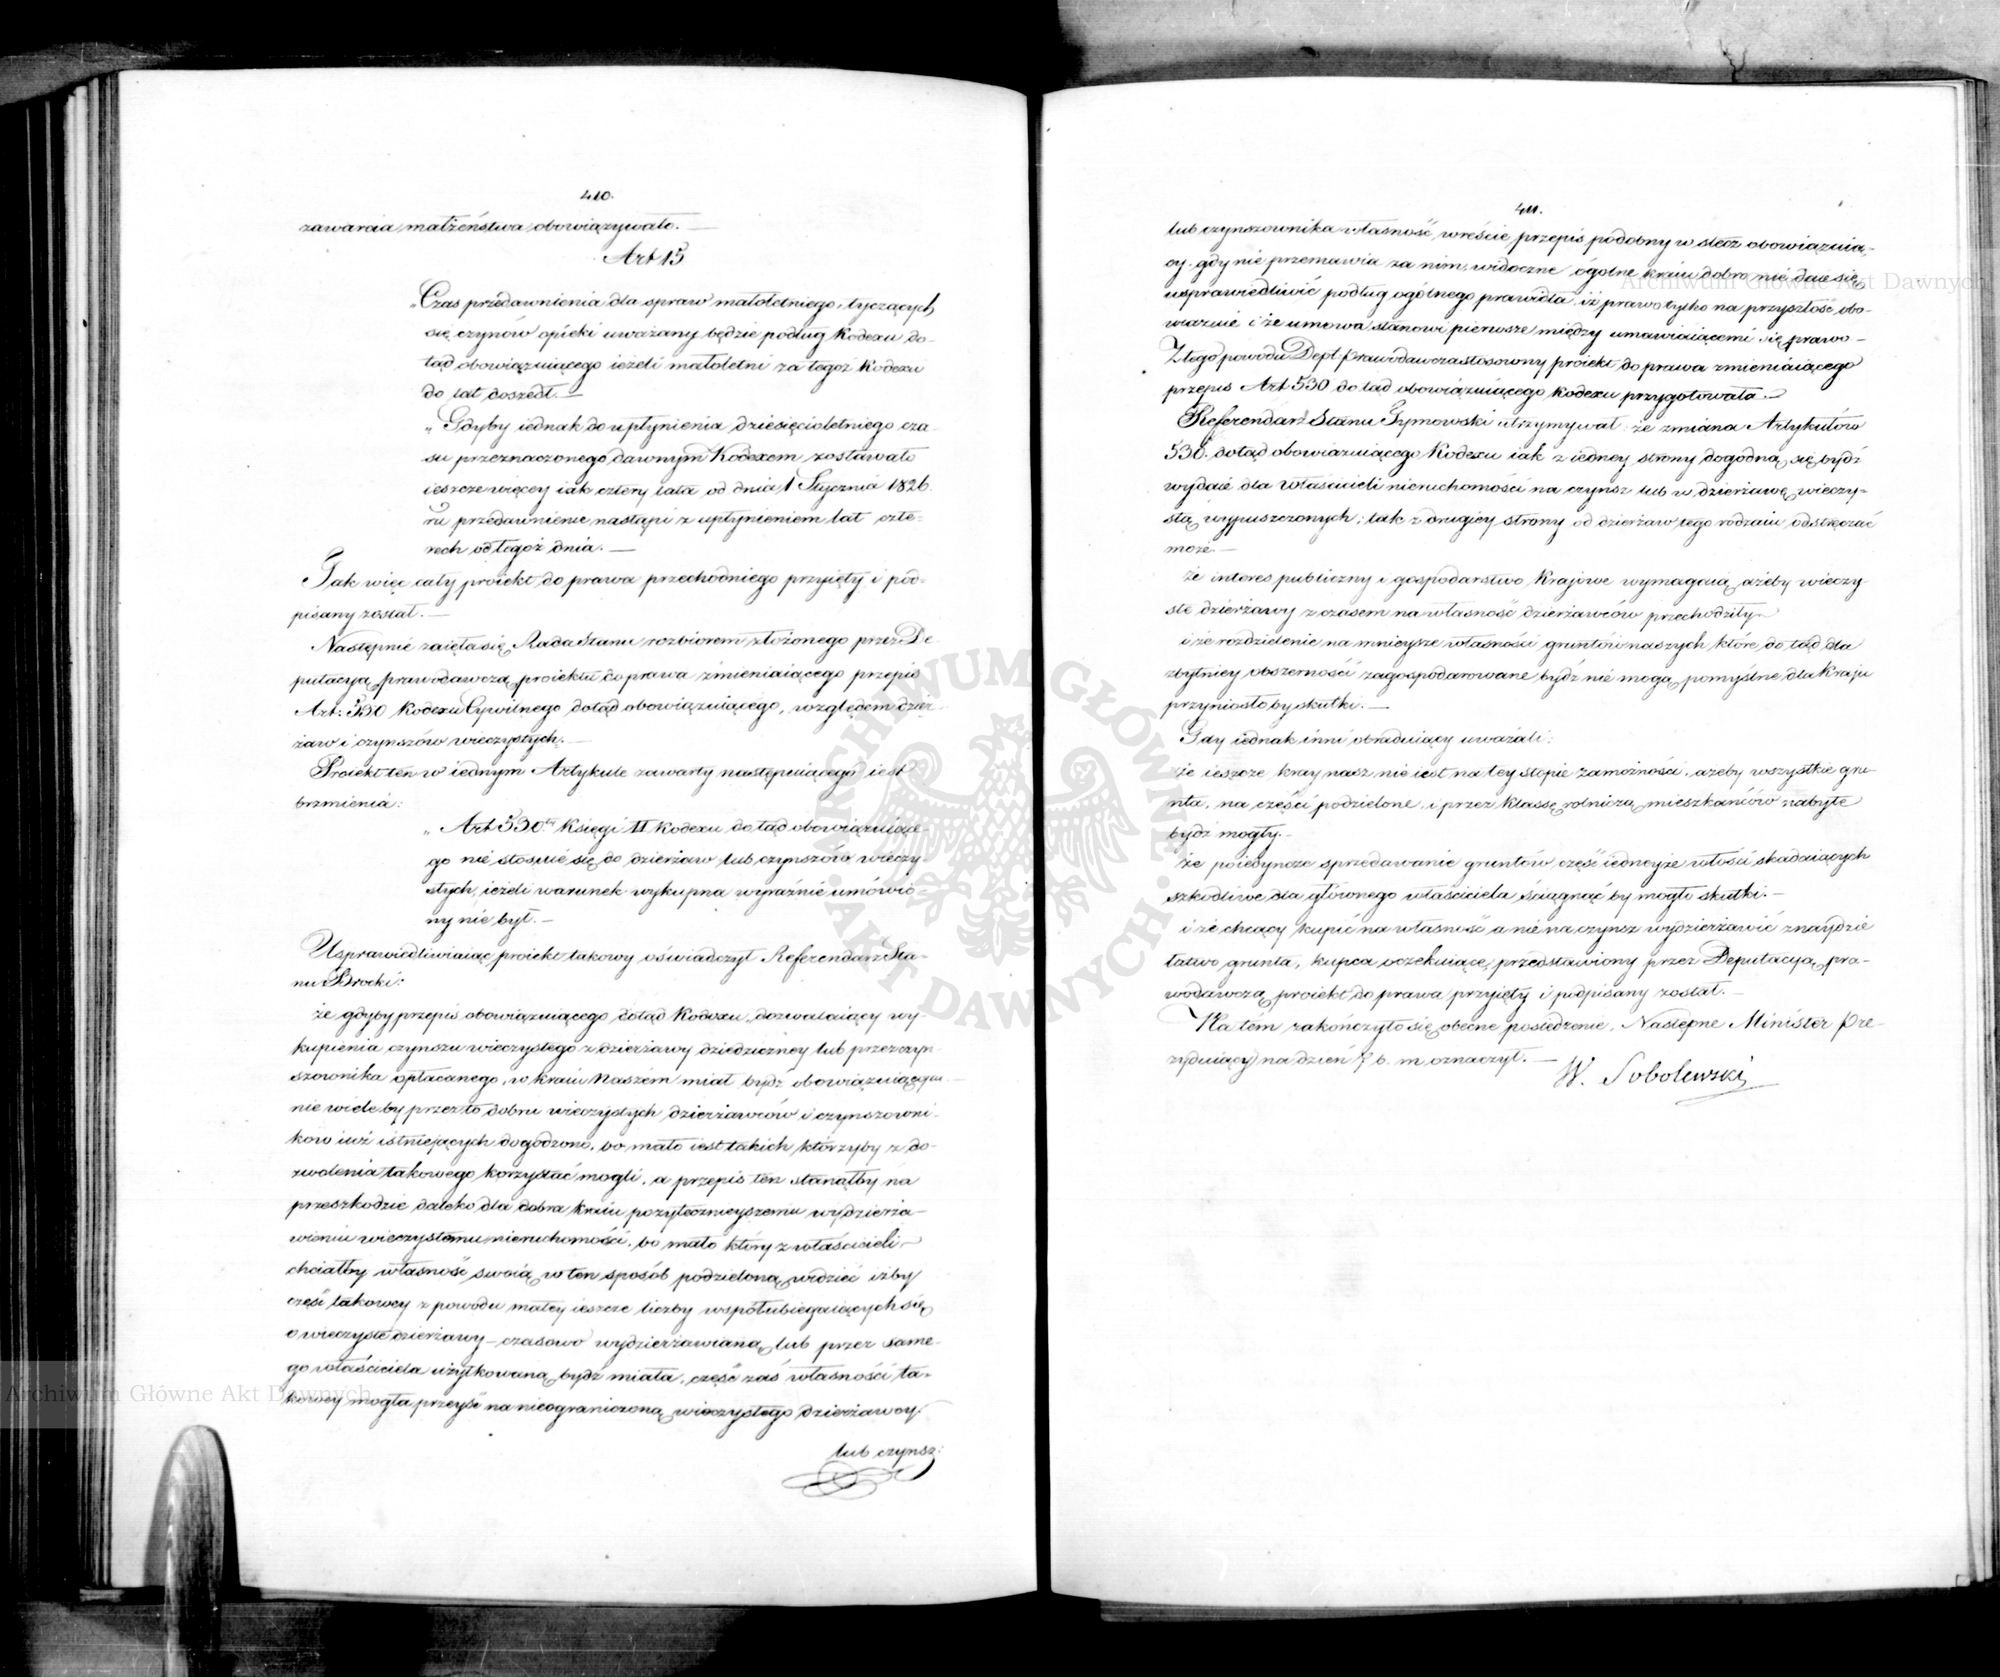 410.
zawarcia małżeństwa obowiązywało. —
Art 15
„Czas przedawnienia dla spraw małoletniego, tyczących
się czynów opieki uważany będzie podług Kodexu do-
tąd obowiązuiącego ieżeli małoletni za tegoż Kodexu
do lat doszedł. —
„Gdyby iednak do upłynienia dziesięcioletniego cza-
su przeznaczonego dawnym Kodexem zostawało
ieszcze więcey iak cztery lata od dnia 1 Stycznia 1826
ru przedawnienie nastąpi z upłynieniem lat czte-
rech od tegoż dnia. —
Tak więc cały proiekt do prawa przechodniego przyięty i pod-
pisany został. —
Następnie zaięła się Rada Stanu rozbiorem złożonego przez De-
putacyą prawodawczą proiektu do prawa zmieniaiącego przepis
Art: 530 Kodexu Cywilnego dotąd obowiązuiącego, względem dzier-
żaw i czynszów wieczystych. —
Proiekt ten w iednym Artykule zawarty następuiącego iest
brzmienia:
„Art 530ty Księgi II Kodexu dotąd obowiązuiące-
go nie stosuie się do dzierżaw lub czynszów wieczy-
stych, ieżeli warunek wykupna wyraźnie umówio-
ny nie był. —
Usprawiedliwiaiąc proiekt takowy oświadczył Referendarz Sta-
nu Brocki:
że gdyby przepis obowiązuiącego dotąd Kodexu, dozwalaiący wy-
kupienia czynszu wieczystego z dzierżawy dziedziczney lub przez czyn-
szownika opłacanego, w kraiu Naszém miał bydź obowiązuiącym —
nie wiele by przez to dobru wieczystych dzierżawców i czynszowni-
ków iuż istniejących dogodzono, bo mało iest takich którzyby z do-
zwolenia takowego korzystać mogli, a przepis ten stanąłby na
przeszkodzie daleko dla dobra kraiu pożytecznieyszemu wydzierża-
wieniu wieczystemu nieruchomości, bo mało który z właścicieli
chciałby własność swoią w ten sposób podzieloną widzieć iżby
część takowey z powodu małey ieszcze liczby współubiegaiących się
o wieczyste dzierżawy — czasowo wydzierżawianą lub przez same-
go właściciela użytkowaną bydź miała, część zaś własności ta-
kowey mogła przeyść na nieograniczoną wieczystego dzierżawcy
lub czynsz:
411.
lub czynszownika własność, wreście przepis podobny wstecz obowiązuią-
cy, gdy nie przemawia za nim, widoczne ogólne kraiu dobro, nie daie się
usprawiedliwić podług ogólnego prawidła, iż prawo tylko na przyszłość obo-
wiązuie i że umowa stanowi pierwsze między umawiaiącemi się prawo —
Z tego powodu Dept. prawodawcza stosowny proiekt do prawa zmieniaiącego
przepis Art 530 dotąd obowiązuiącego Kodexu przygotowała. —
Referendarz Stanu Tymowski utrzymywał: że zmiana Artykułów
530. dotąd obowiązuiącego Kodexu iak z iedney strony dogodną się bydź
wydaie dla właścicieli nieruchomości na czynsz lub w dzierżawę wieczy-
stą wypuszczonych; tak z drugiey strony od dzierżaw tego rodzaiu odstręczać
może. —
że interes publiczny i gospodarstwo Krajowe wymagaią, ażeby wieczy-
ste dzierżawy z czasem na własność dzierżawców przechodziły —
i że rozdzielenie na mnieysze własności gruntów naszych które dotąd dla
zbytniey obszerności zagospodarowane bydź nie mogą, pomyślne dla Kraju
przyniosłoby skutki. —
Gdy iednak inni obraduiący uważali:
że ieszcze kray nasz nie iest na tey stopie zamożności, ażeby wszystkie gru-
nta, na części podzielone, i przez klassę rolniczą mieszkańców nabyte
bydź mogły. —
że poiedyncze sprzedawanie gruntów część iedneyże włości składaiących
szkodliwe dla głównego właściciela ściągnąć by mogło skutki. —
i że chcący kupić na własność a nie na czynsz wydzierżawić znaydzie
łatwo grunta, kupca oczekuiące, przedstawiony przez Deputacyą pra-
wodawczą proiekt do prawa przyięty i podpisany został. —
Na tém zakończyło się obecne posiedzenie, Następne Minister Pre-
zyduiący na dzień 7 b. m. oznaczył. —
W. Sobolewski
ARCHIWUM GŁÓWNE AKT DAWNYCH
Archiwum Główne Akt Dawnych
Archiwum Główne Akt Dawnych